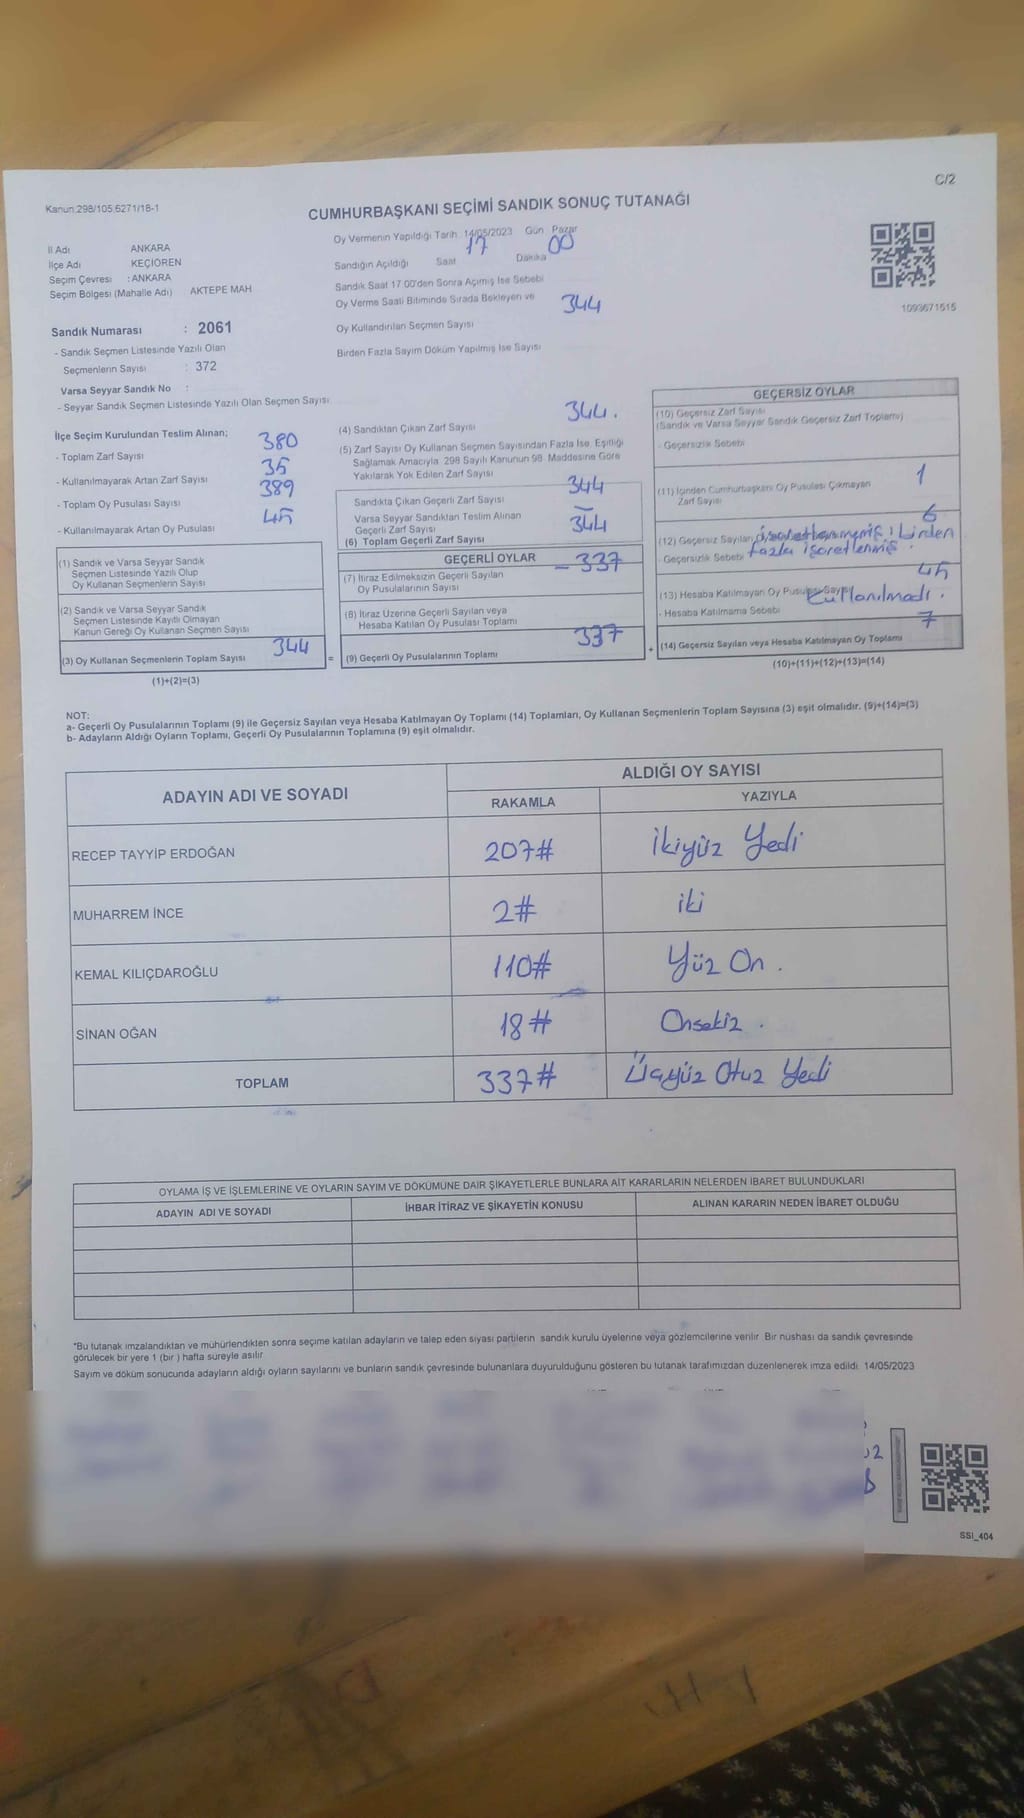 C/2
Kanun:298/105,6271/18-1
CUMHURBAŞKANI SEÇİMİ SANDIK SONUÇ TUTANAĞI
İl Adı ANKARA
İlçe Adı KEÇİÖREN
Seçim Çevresi : ANKARA
Seçim Bölgesi (Mahalle Adı) AKTEPE MAH
Sandık Numarası : 2061
- Sandık Seçmen Listesinde Yazılı Olan
Seçmenlerin Sayısı : 372
Varsa Seyyar Sandık No :
- Seyyar Sandık Seçmen Listesinde Yazılı Olan Seçmen Sayısı
Oy Vermenin Yapıldığı Tarih 14/05/2023 Gün Pazar
Sandığın Açıldığı Saat 17 Dakika 00
Sandık Saat 17.00'den Sonra Açımış İse Sebebi
Oy Verme Saati Bitiminde Sırada Bekleyen ve
344
Oy Kullandırılan Seçmen Sayısı
Birden Fazla Sayım Döküm Yapılmış İse Sayısı
1093671515
İlçe Seçim Kurulundan Teslim Alınan;
- Toplam Zarf Sayısı 380
- Kullanılmayarak Artan Zarf Sayısı 35
- Toplam Oy Pusulası Sayısı 389
- Kullanılmayarak Artan Oy Pusulası 45
(1) Sandık ve Varsa Seyyar Sandık
Seçmen Listesinde Yazılı Olup
Oy Kullanan Seçmenlerin Sayısı
(2) Sandık ve Varsa Seyyar Sandık
Seçmen Listesinde Kayıtlı Olmayan
Kanun Gereği Oy Kullanan Seçmen Sayısı
(3) Oy Kullanan Seçmenlerin Toplam Sayısı 344
(1)+(2)=(3)
(4) Sandıktan Çıkan Zarf Sayısı 344.
(5) Zarf Sayısı Oy Kullanan Seçmen Sayısından Fazla İse, Eşitliği
Sağlamak Amacıyla, 298 Sayılı Kanunun 98. Maddesine Göre
Yakılarak Yok Edilen Zarf Sayısı
Sandıkta Çıkan Geçerli Zarf Sayısı 344
Varsa Seyyar Sandıktan Teslim Alınan
Geçerli Zarf Sayısı –
(6) Toplam Geçerli Zarf Sayısı 344
GEÇERLİ OYLAR
(7) İtiraz Edilmeksizin Geçerli Sayılan
Oy Pusulalarının Sayısı 337
(8) İtiraz Üzerine Geçerli Sayılan veya
Hesaba Katılan Oy Pusulası Toplamı
= (9) Geçerli Oy Pusulalarının Toplamı 337
GEÇERSİZ OYLAR
(10) Geçersiz Zarf Sayısı
(Sandık ve Varsa Seyyar Sandık Geçersiz Zarf Toplamı)
- Geçersizlik Sebebi
(11) İçinden Cumhurbaşkanı Oy Pusulası Çıkmayan
Zarf Sayısı 1
6
(12) Geçersiz Sayılan işaretlenmemiş, birden
- Geçersizlik Sebebi fazla işaretlenmiş.
45
(13) Hesaba Katılmayan Oy Pusulası Sayısı Kullanılmadı.
- Hesaba Katılmama Sebebi
+ (14) Geçersiz Sayılan veya Hesaba Katılmayan Oy Toplamı 7
(10)+(11)+(12)+(13)=(14)
NOT:
a- Geçerli Oy Pusulalarının Toplamı (9) ile Geçersiz Sayılan veya Hesaba Katılmayan Oy Toplamı (14) Toplamları, Oy Kullanan Seçmenlerin Toplam Sayısına (3) eşit olmalıdır. (9)+(14)=(3)
b- Adayların Aldığı Oyların Toplamı, Geçerli Oy Pusulalarının Toplamına (9) eşit olmalıdır.
ADAYIN ADI VE SOYADI ALDIĞI OY SAYISI
RAKAMLA YAZIYLA
RECEP TAYYİP ERDOĞAN 207# İkiyüz Yedi
MUHARREM İNCE 2# iki
KEMAL KILIÇDAROĞLU 110# Yüz On .
SİNAN OĞAN 18# Onsekiz .
TOPLAM 337# Üçyüz Otuz Yedi
OYLAMA İŞ VE İŞLEMLERİNE VE OYLARIN SAYIM VE DÖKÜMÜNE DAİR ŞİKAYETLERLE BUNLARA AİT KARARLARIN NELERDEN İBARET BULUNDUKLARI
ADAYIN ADI VE SOYADI İHBAR İTİRAZ VE ŞİKAYETİN KONUSU ALINAN KARARIN NEDEN İBARET OLDUĞU
*Bu tutanak imzalandıktan ve mühürlendikten sonra seçime katılan adayların ve talep eden siyasi partilerin sandık kurulu üyelerine veya gözlemcilerine verilir. Bir nüshası da sandık çevresinde
görülecek bir yere 1 (bir ) hafta süreyle asılır
Sayım ve döküm sonucunda adayların aldığı oyların sayılarını ve bunların sandık çevresinde bulunanlara duyurulduğunu gösteren bu tutanak tarafımızdan düzenlenerek imza edildi. 14/05/2023
SSI_404